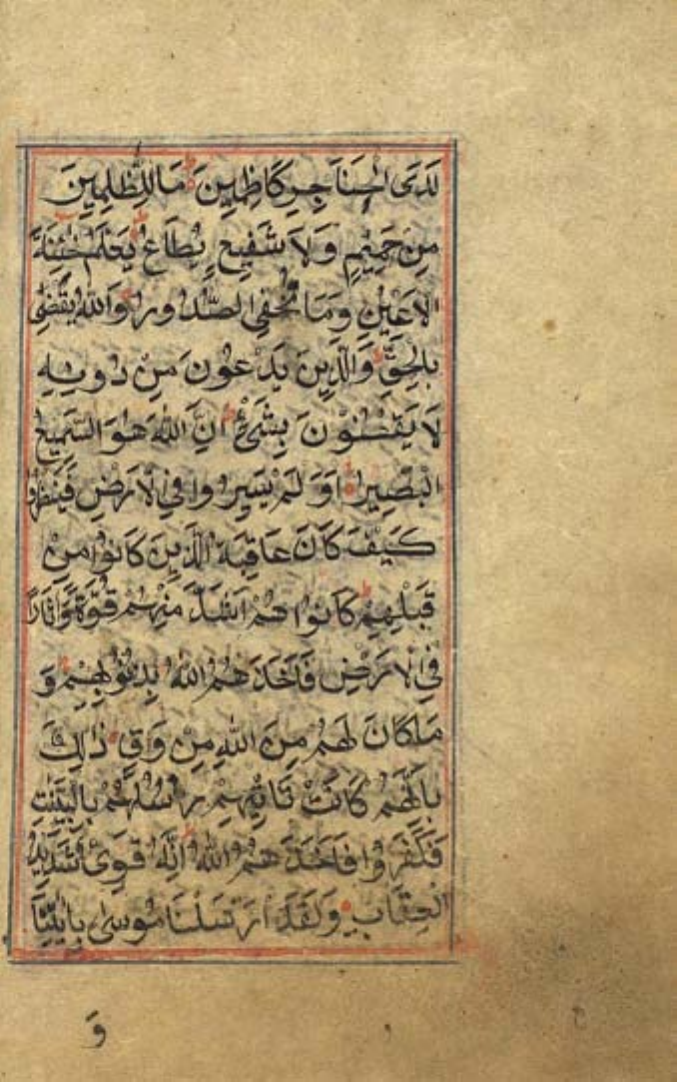 لَدَى الْحَنَاجِرِ كَاظِمِينَ مَا لِلظّٰلِمِينَ
مِنْ حَمِيْمٍ وَلَا شَفِيعٍ يُطَاعُ يَعْلَمُ خَائِنَةَ
الْاَعْيُنِ وَمَا تُخْفِي الصُّدُورُ وَاللّٰهُ يَقْضِي
بِالْحَقِّ وَالَّذِينَ يَدْعُونَ مِنْ دُونِهِ
لَا يَقْضُوْنَ بِشَيْءٍ اِنَّ اللّٰهَ هُوَ السَّمِيعُ
الْبَصِيرُ اَوَلَمْ يَسِيرُوا فِي الْاَرْضِ فَيَنْظُرُوا
كَيْفَ كَانَ عَاقِبَةُ الَّذِينَ كَانُوا مِنْ
قَبْلِهِمْ كَانُوا هُمْ اَشَدَّ مِنْهُمْ قُوَّةً وَاٰثَارًا
فِي الْاَرْضِ فَاَخَذَهُمُ اللّٰهُ بِذُنُوبِهِمْ وَ
مَا كَانَ لَهُمْ مِنَ اللّٰهِ مِنْ وَاقٍ ذٰلِكَ
بِاَنَّهُمْ كَانَتْ تَاْتِيْهِمْ رُسُلُهُمْ بِالْبَيِّنٰتِ
فَكَفَرُوا فَاَخَذَهُمُ اللّٰهُ اِنَّهُ قَوِيٌّ شَدِيدُ
الْعِقَابِ وَلَقَدْ اَرْسَلْنَا مُوسٰى بِاٰيٰتِنَا
وَ